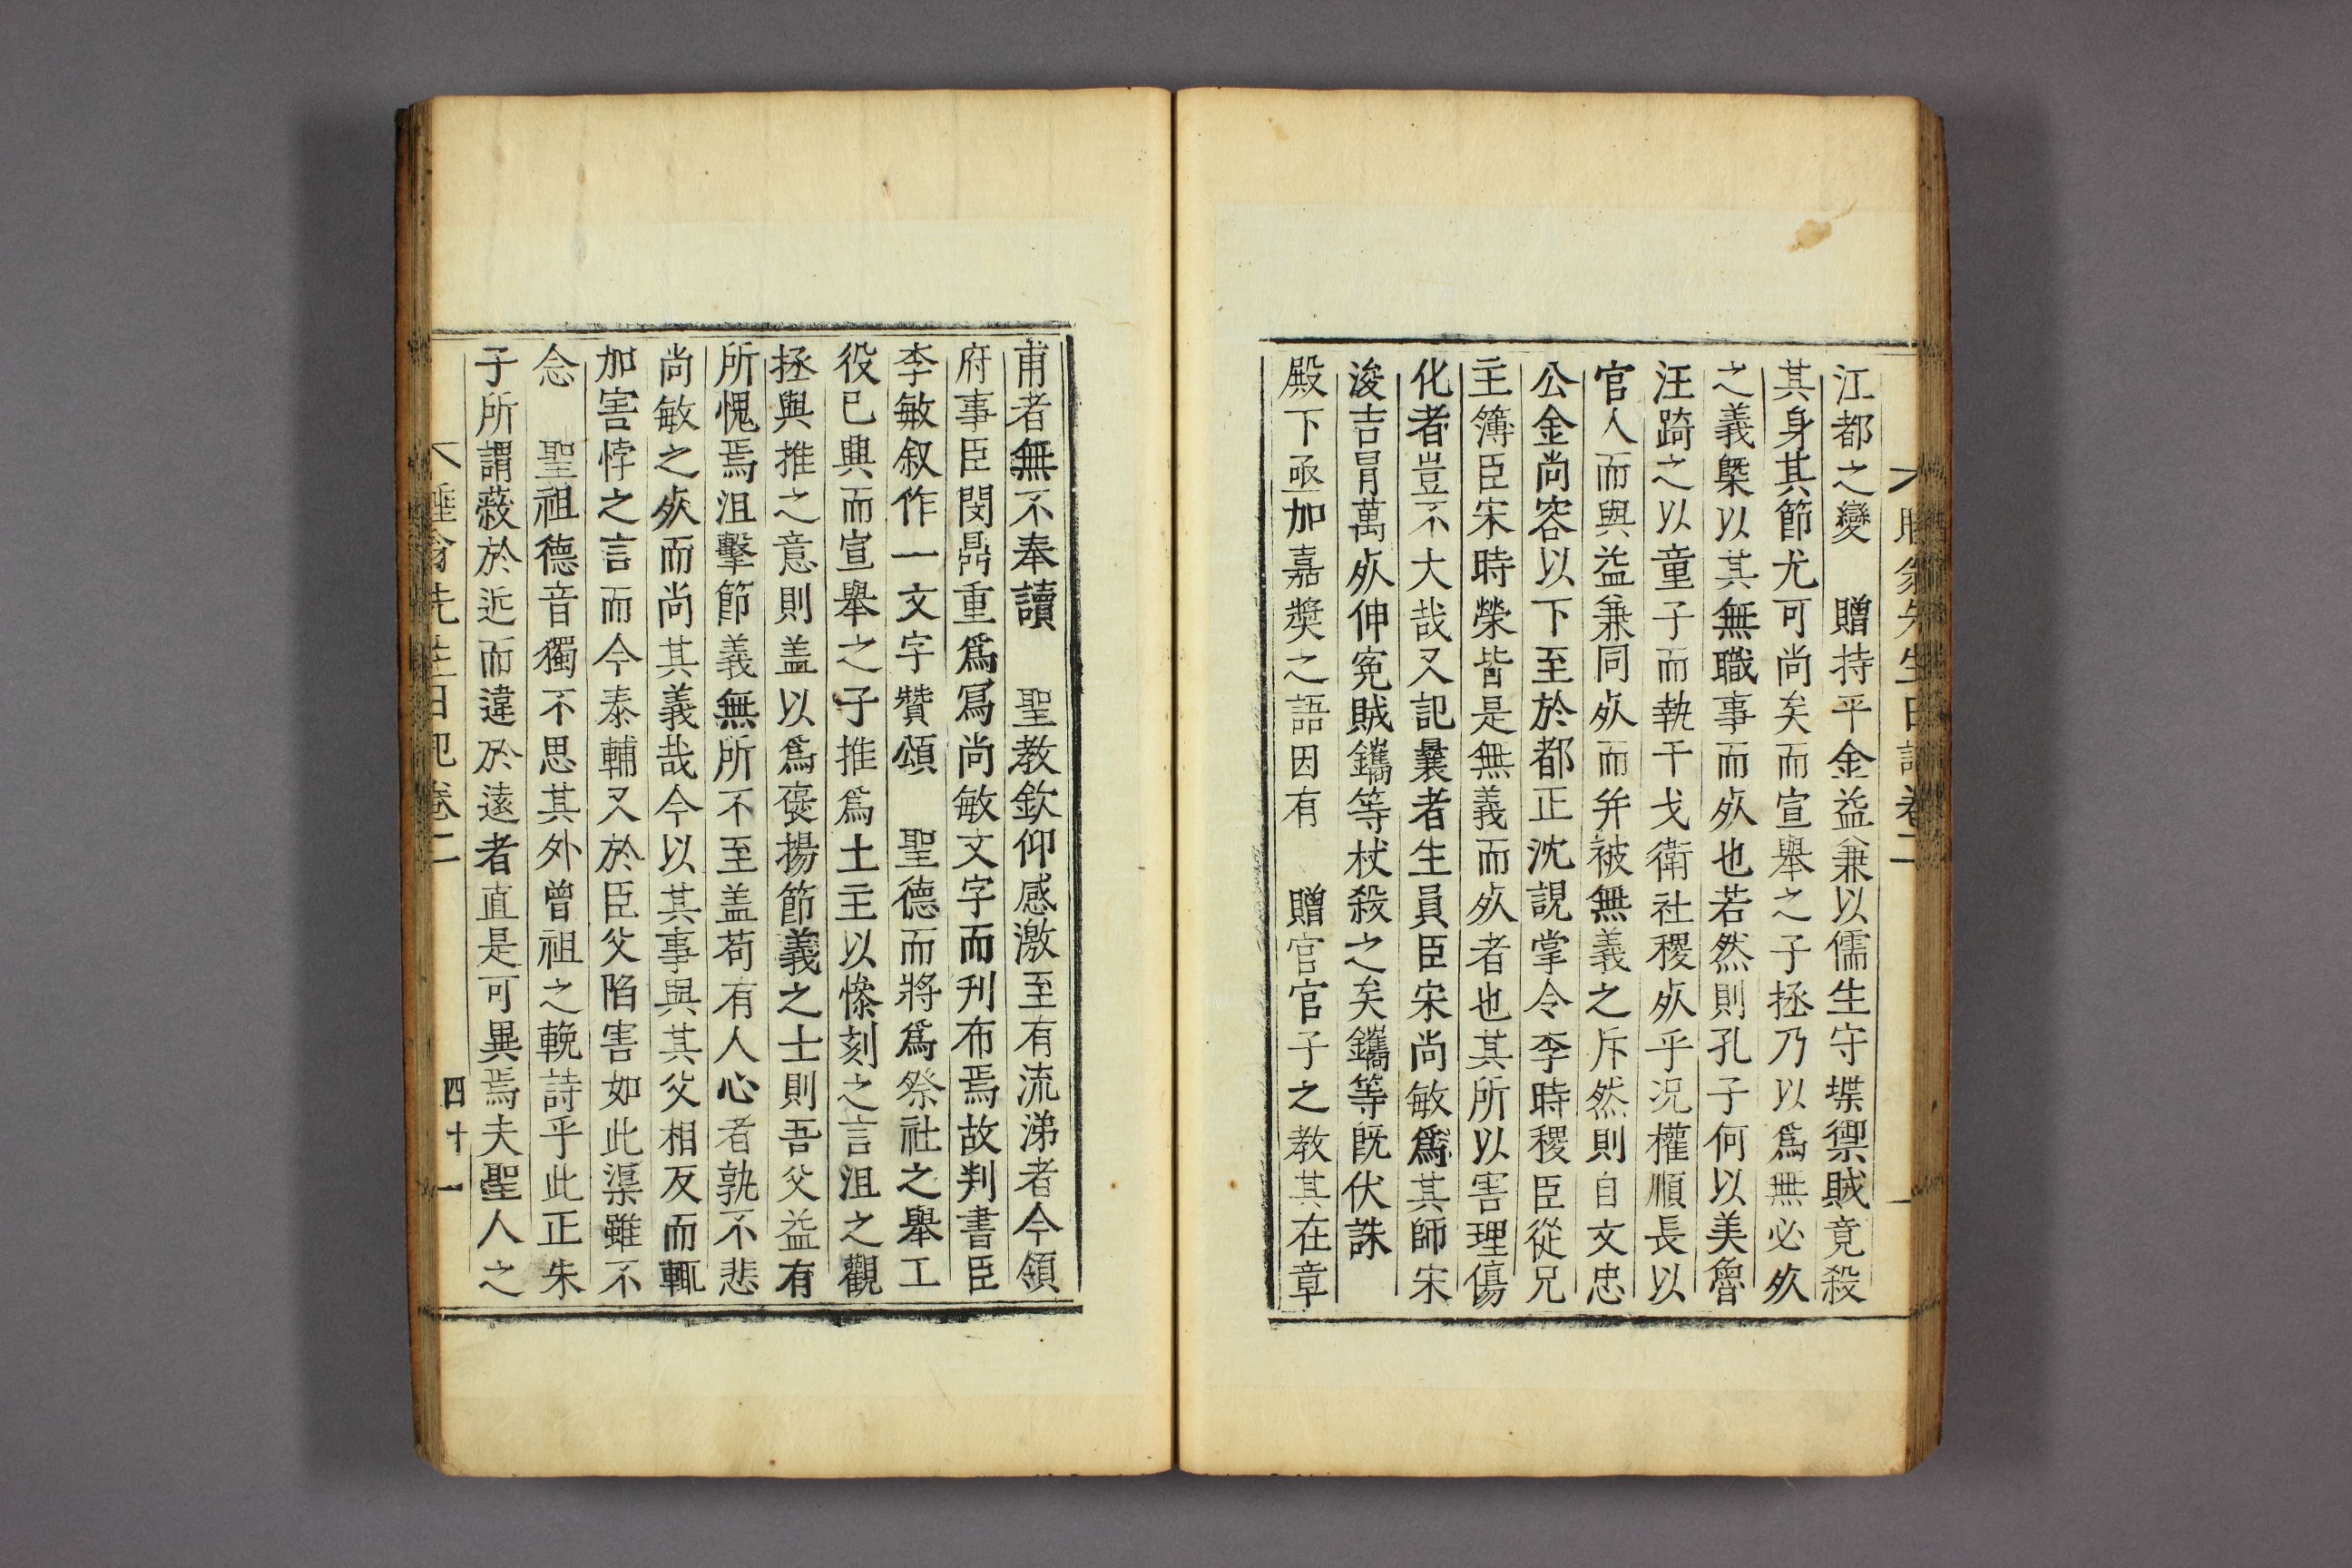 江都之變　贈持平金益兼以儒生守堞禦賊竟殺
其身其節尤可尚矣而宣舉之子拯乃以爲無必死
之義槩以其無職事而死也若然則孔子何以美魯
汪踦之以童子而執干戈衛社稷死乎况權順長以
官人而與益兼同死而并被無義之斥然則自文忠
公金尚容以下至於都正沈誢掌令李時稷臣從兄
主簿臣宋時榮皆是無義而死者也其所以害理傷
化者豈不大哉又記曩者生員臣宋尚敏爲其師宋
浚吉冒萬死伸寃賊鑴等杖殺之矣鑴等旣伏誅
殿下亟加嘉奬之語因有　贈官官子之教其在章
甫者無不奉讀　聖教欽仰感激至有流涕者今領
府事臣閔鼎重爲寫尚敏文字而刊布焉故判書臣
李敏叙作一文字贊頌　聖德而將爲祭社之舉工
役已興而宣舉之子推爲土主以慘刻之言沮之觀
拯與推之意則盖以爲褒揚節義之士則吾父益有
所愧焉沮擊節義無所不至盖苟有人心者孰不悲
尚敏之死而尚其義哉今以其事與其父相反而輒
加害悖之言而今泰輔又於臣父陷害如此渠雖不
念　聖祖德音獨不思其外曾祖之輓詩乎此正朱
子所謂蔽於近而違於遠者直是可異焉夫聖人之
先生日記卷二　四十一